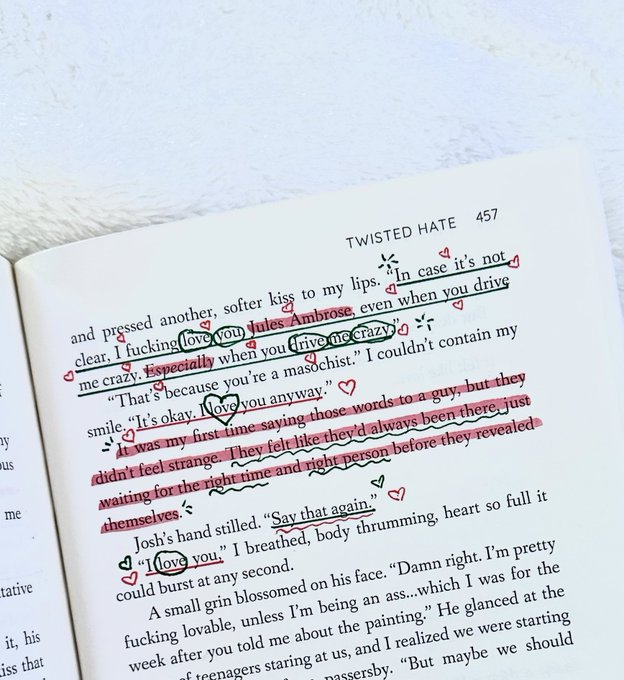 TWISTED HATE 457
and pressed another, softer kiss to my lips. "In case it's not
clear, I fucking love you, Jules Ambrose, even when you drive
me crazy. Especially when you drive me crazy."
"That's because you're a masochist." I couldn't contain my
smile. "It's okay. I love you anyway."
It was my first time saying those words to a guy, but they
didn't feel strange. They felt like they'd always been there, just
waiting for the right time and right person before they revealed
themselves.
Josh's hand stilled. "Say that again."
"I love you," I breathed, body thrumming, heart so full it
could burst at any second.
A small grin blossomed on his face. "Damn right. I'm pretty
fucking lovable, unless I'm being an ass...which I was for the
week after you told me about the painting." He glanced at the
of teenagers staring at us, and I realized we were starting
passersby. "But maybe we should
me
tative
it, his
iss that